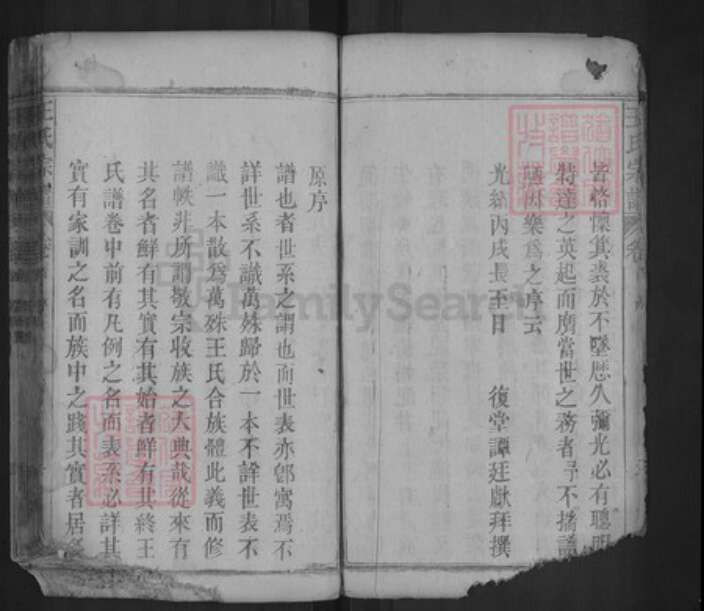 皆恪懷箕裘於不墜歷久彌光必有聰明
特達之英起而膺當世之務者予不揣譾
陋因樂為之序云
光緒丙戌長至日 復堂譚廷獻拜撰
王氏宗譜 卷
原序
譜也者世系之謂也而世表亦卽寓焉不
詳世系不識萬殊歸於一本不詳世表不
識一本散為萬殊王氏合族體此義而修
譜軼非所謂敬宗收族之大典哉從來有
其名者鮮有其實有其始者鮮有其終王
氏譜卷中前有凡例之名而表系必詳其
實有家訓之名而族中之踐其實者居多
王氏宗譜
FamilySearch